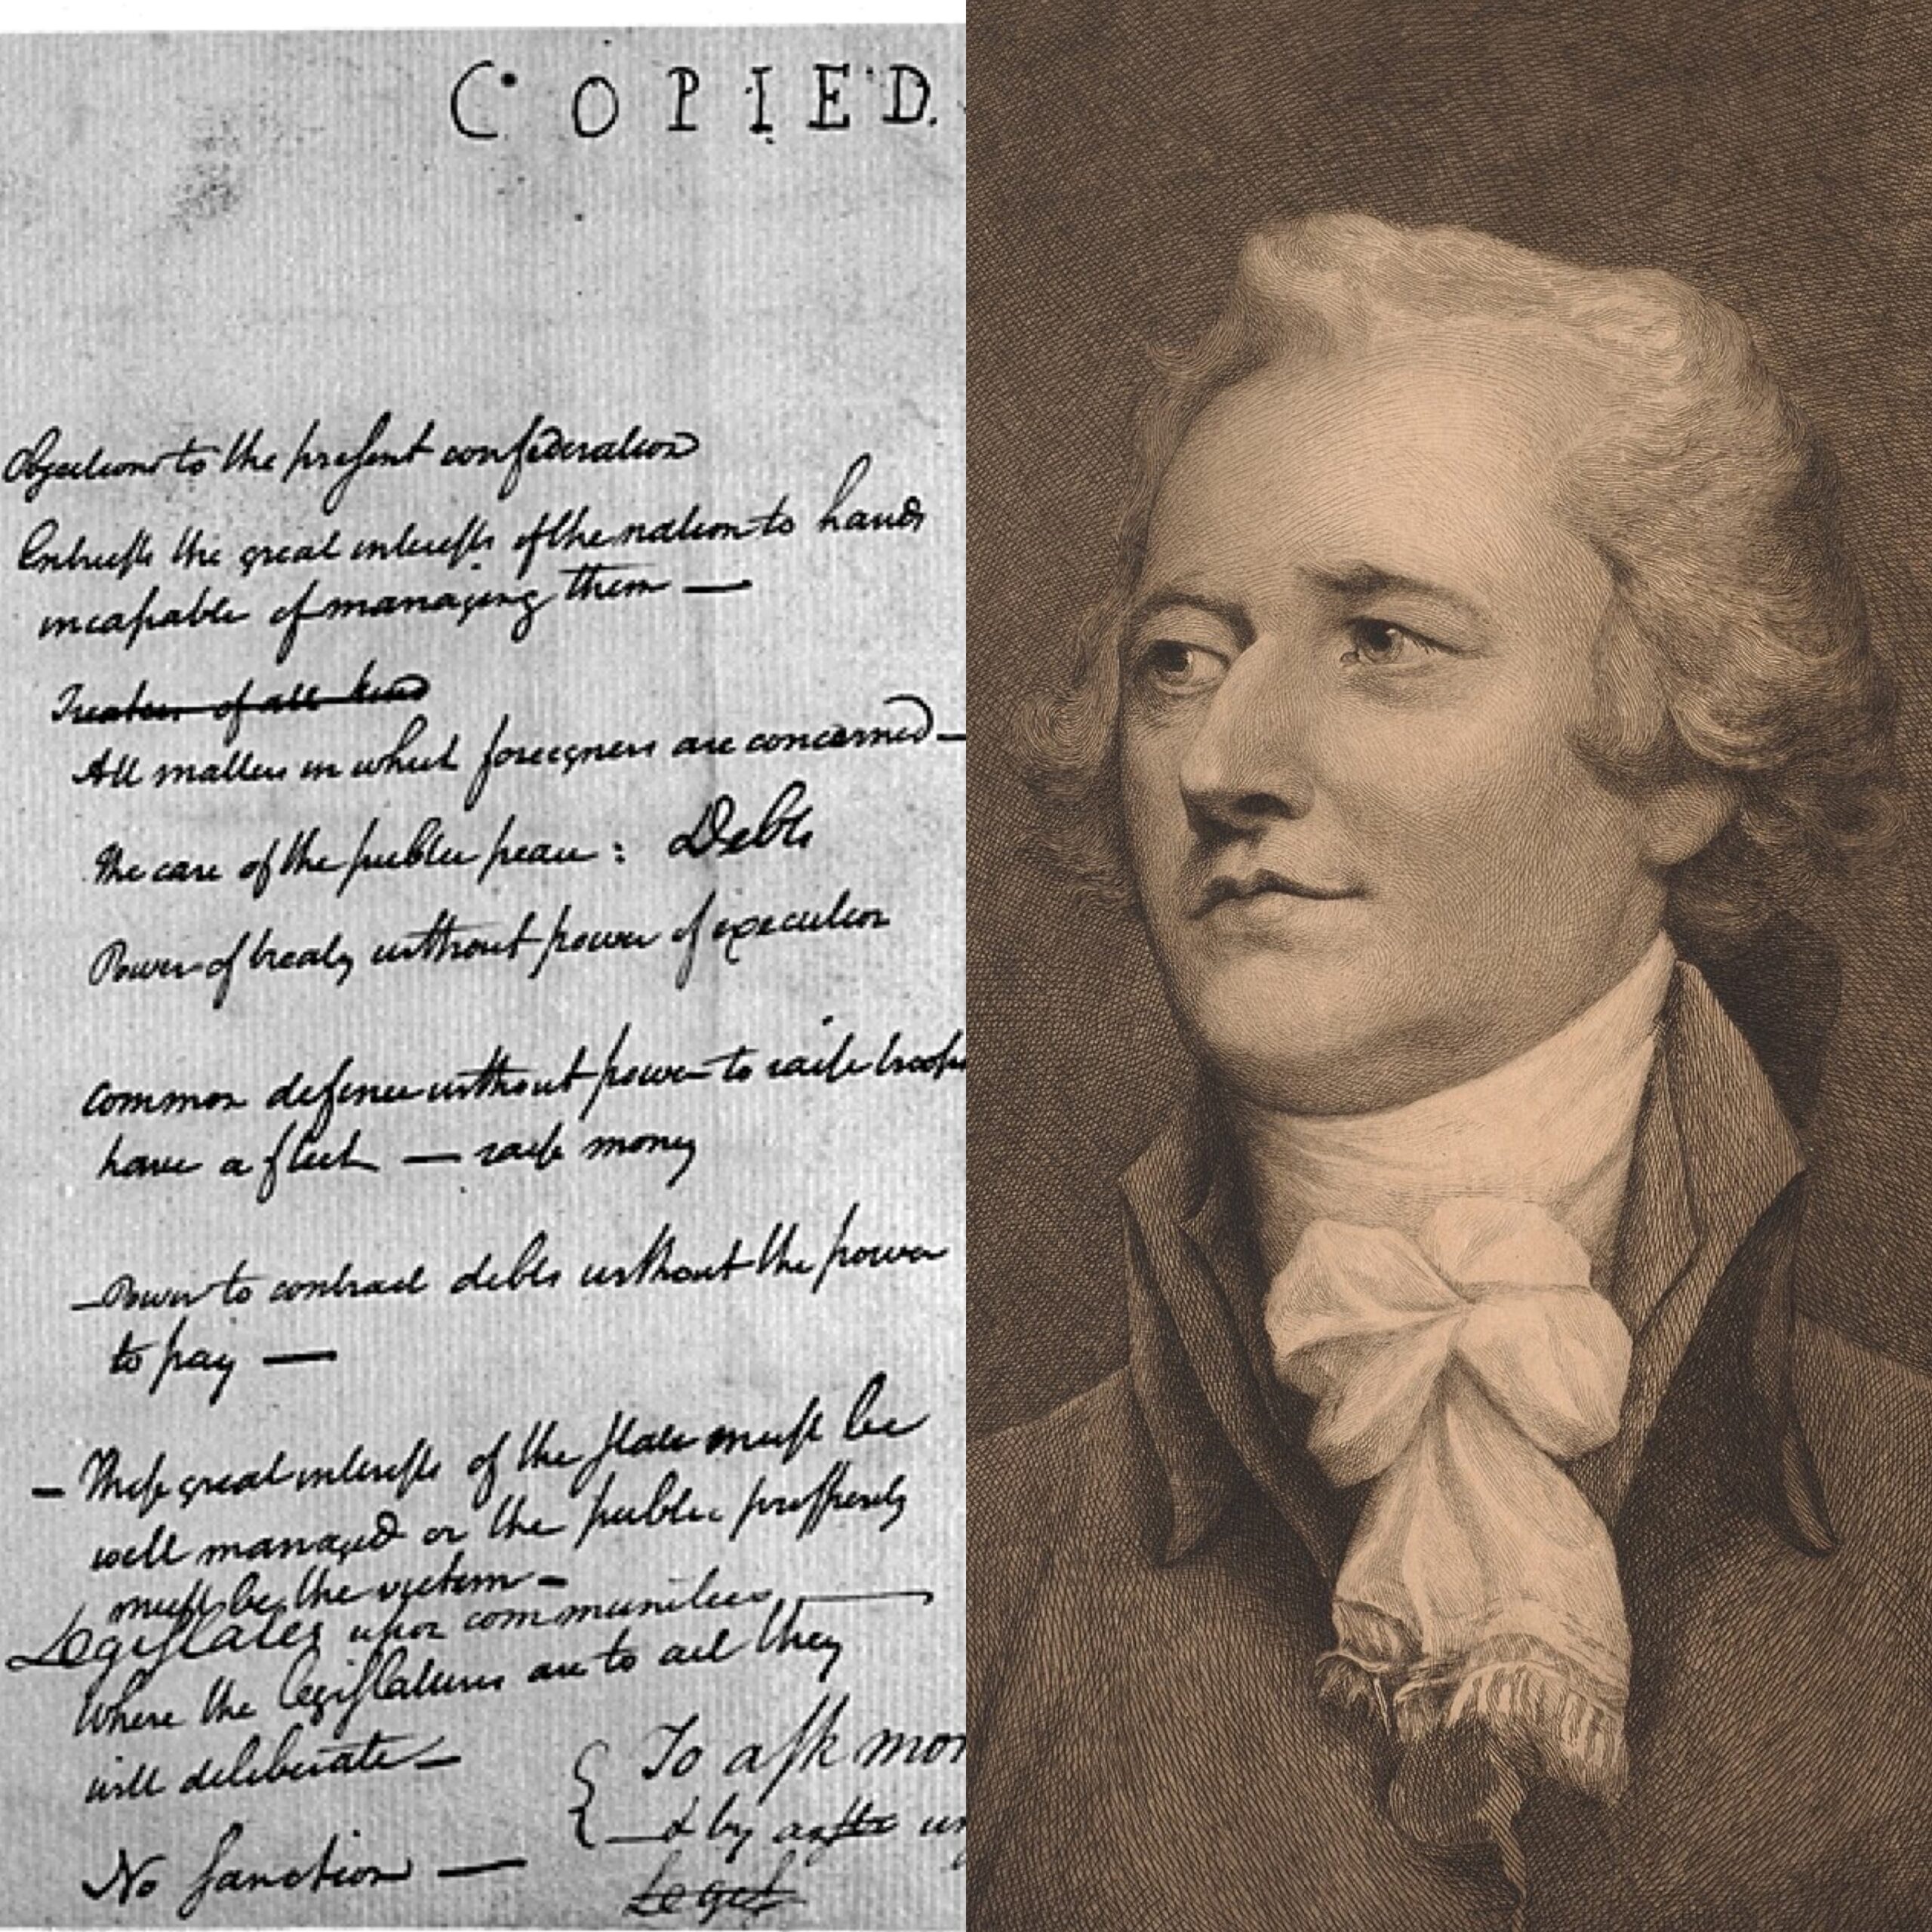 COPIED.
Objections to the present confederation
Entrusts the great interests of the nation to hands
incapable of managing them —
Treaties of all kind
All matters in which foreigners are concerned —
The care of the public peace: Debts
Power of treaty without power of execution
Common defence without power to raise troops
have a fleet — raise money
— Power to contract debts without the power
to pay —
— These great interests of the state must be
well managed or the public prosperity
must be the victim —
Legislates upon communities —
Where the legislatures are to act they
will deliberate —
{ To ask mon
— & by
No sanction —